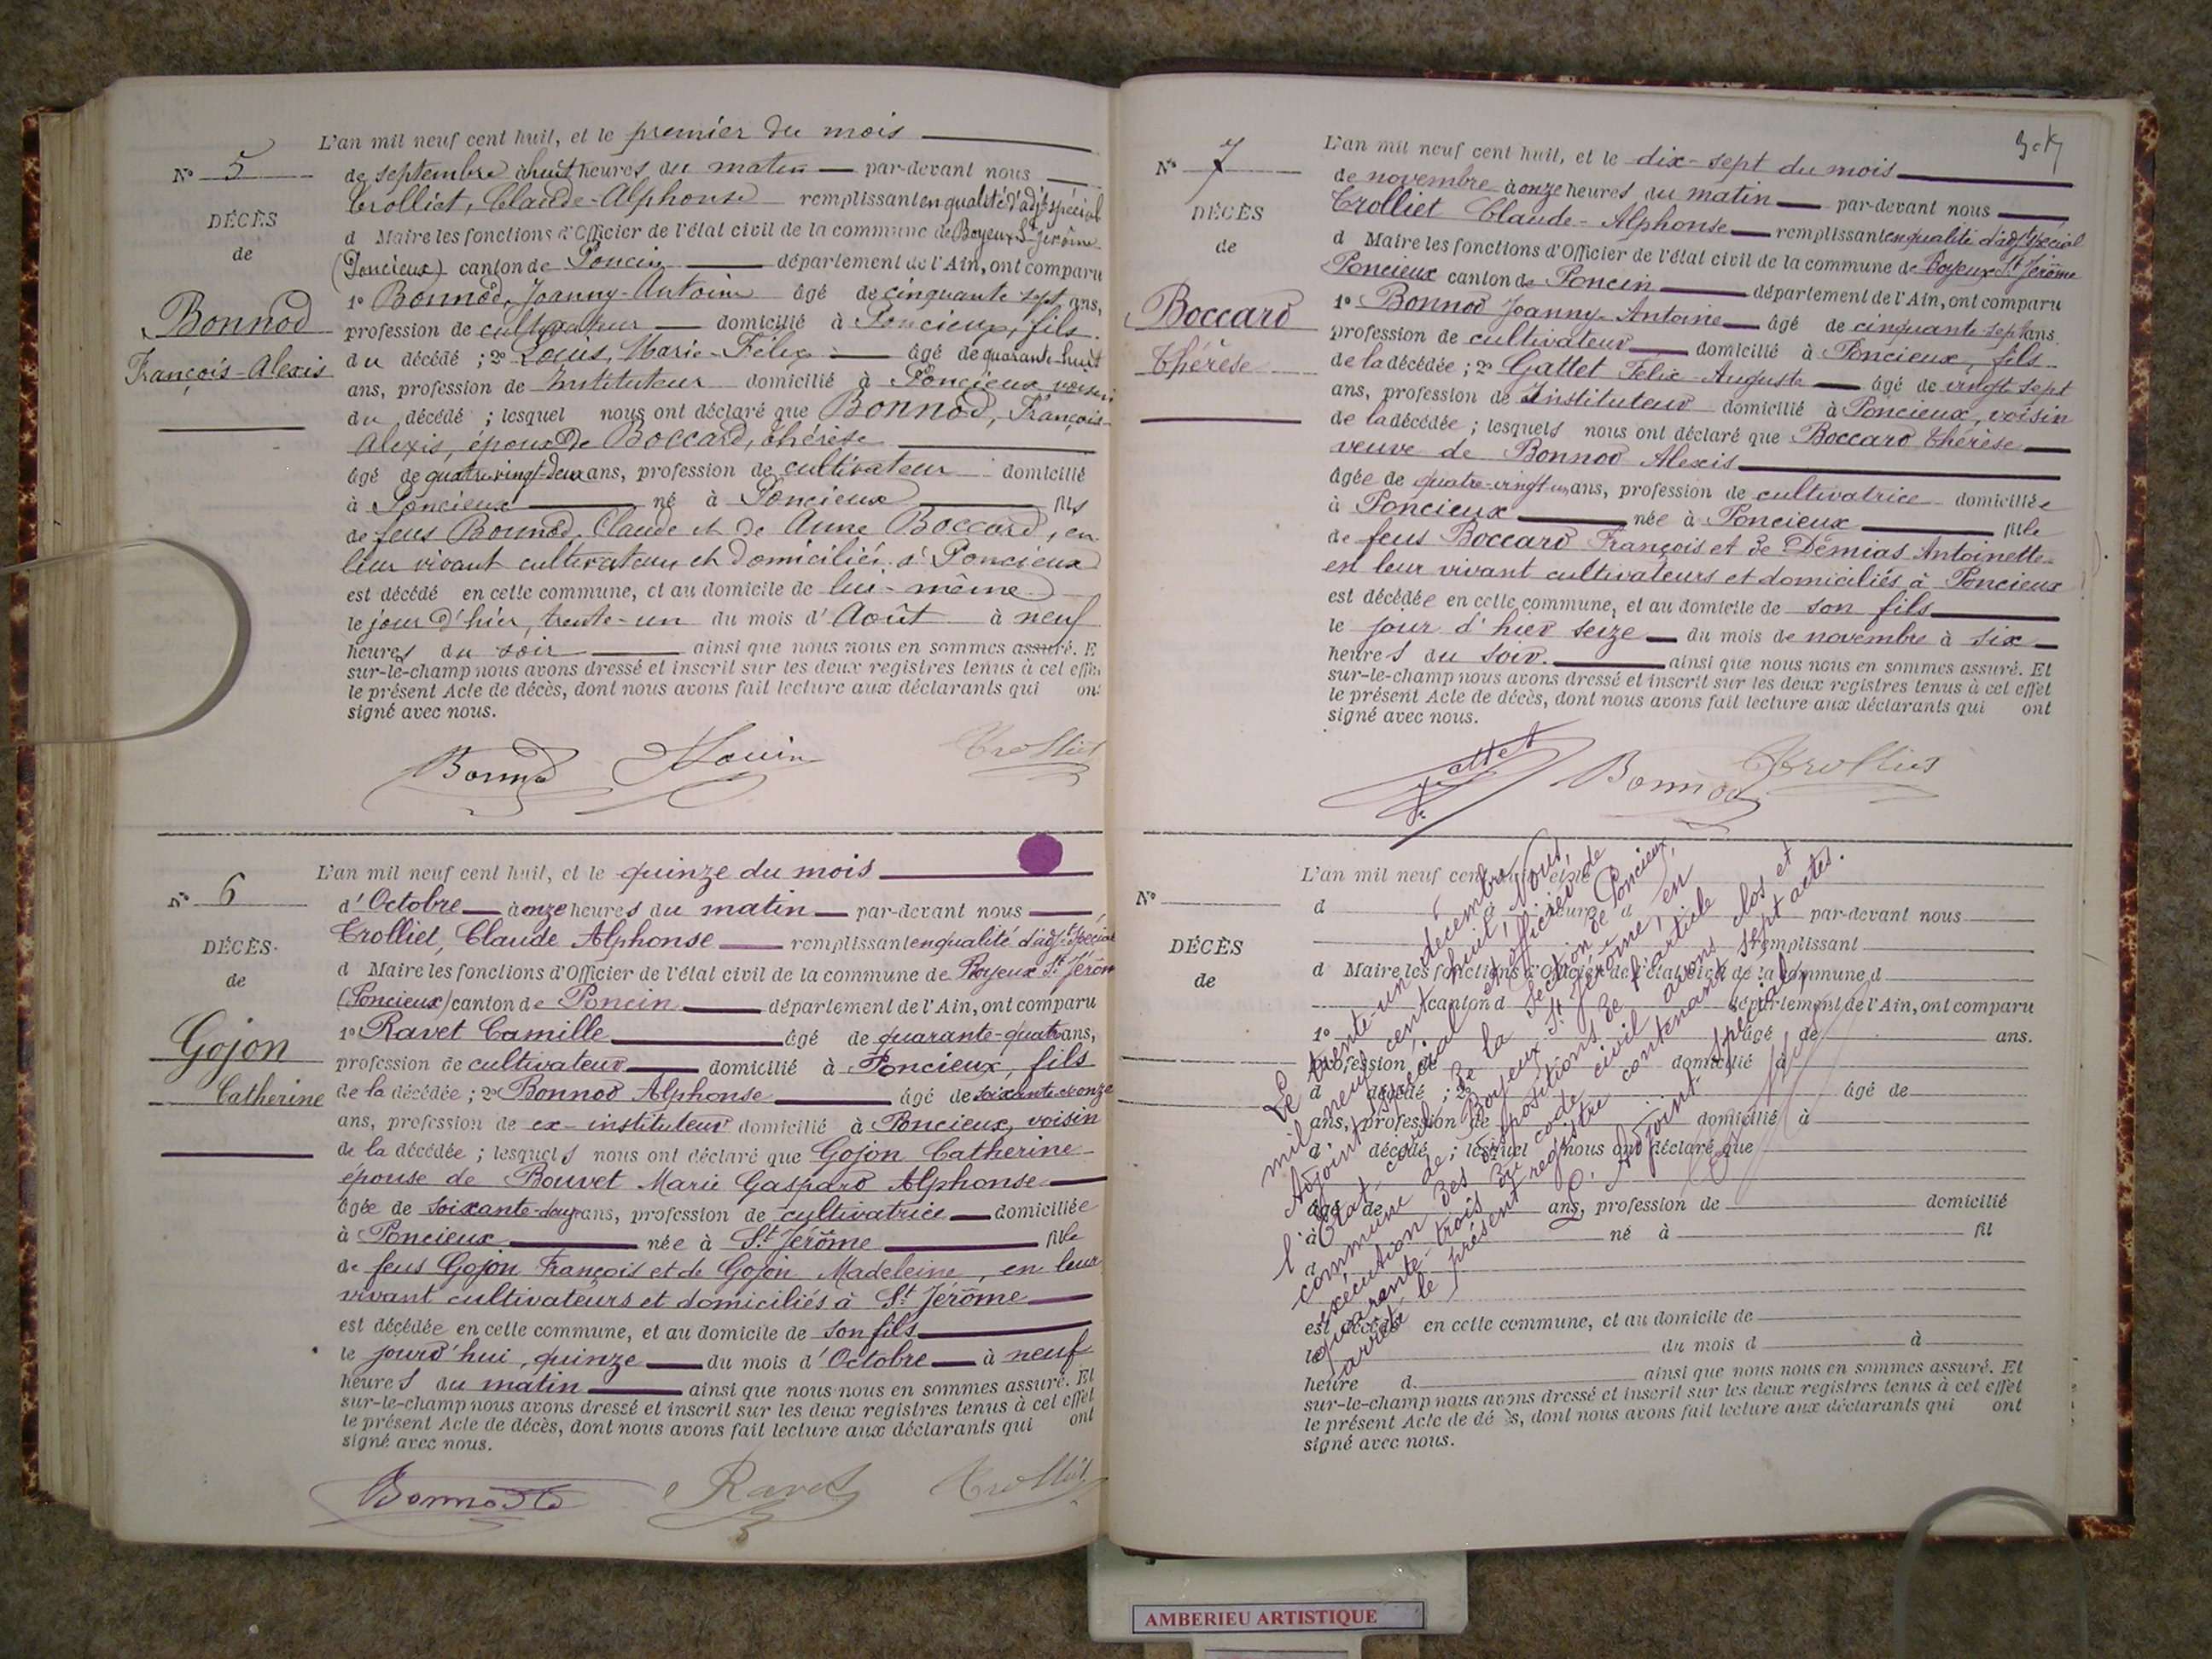 L'an mil neuf cent huit, et le premier du mois
N° 5
de septembre à huit heures du matin par-devant nous
Trolliet, Claude-Alphonse remplissant en qualité d'adjt spécial
DÉCÈS
d Maire les fonctions d'Officier de l'état civil de la commune de Boyeux St Jérôme
de
(Poncieux) canton de Poncin département de l'Ain, ont comparu
1° Bonnod, Joanny-Antoine âgé de cinquante sept ans,
Bonnod
profession de cultivateur domicilié à Poncieux, fils
François-Alexis
du décédé ; 2° Louis, Marie-Félix âgé de quarante huit
ans, profession de Instituteur domicilié à Poncieux, voisin
du décédé ; lesquel nous ont déclaré que Bonnod, François-
Alexis, époux de Boccard, Thérèse
âgé de quatre vingt-deux ans, profession de cultivateur domicilié
à Poncieux né à Poncieux fils
de feus Bonnod, Claude et de Anne Boccard, en
leur vivant cultivateurs et domiciliés à Poncieux
est décédé en cette commune, et au domicile de lui-même
le jour d'hier, trente-un du mois d'Août à neuf
heures du soir ainsi que nous nous en sommes assuré. E
sur-le-champ nous avons dressé et inscrit sur les deux registres tenus à cet effe
le présent Acte de décès, dont nous avons fait lecture aux déclarants qui on
signé avec nous.
Bonnod Trolliet
L'an mil neuf cent huit, et le quinze du mois
N° 6
d'Octobre à onze heures du matin par-devant nous
Trolliet, Claude Alphonse remplissant en qualité d'adjt spécial
DÉCÈS
d Maire les fonctions d'Officier de l'état civil de la commune de Boyeux St Jérôm
de
(Poncieux) canton de Poncin département de l'Ain, ont comparu
1° Ravet Camille âgé de quarante-quatre ans,
Gojon
profession de cultivateur domicilié à Poncieux, fils
Catherine
de la décédée ; 2° Bonnod Alphonse âgé de soixante et onze
ans, profession de ex-instituteur domicilié à Poncieux, voisin
de la décédée ; lesquels nous ont déclaré que Gojon Catherine
épouse de Bouvet Marie Gaspard Alphonse
âgée de soixante-douze ans, profession de cultivatrice domiciliée
à Poncieux née à St Jérôme fille
de feus Gojon François et de Gojon Madeleine, en leur
vivant cultivateurs et domiciliés à St Jérôme
est décédée en cette commune, et au domicile de son fils
le jourd'hui, quinze du mois d'Octobre à neuf
heures du matin ainsi que nous nous en sommes assuré. Et
sur-le-champ nous avons dressé et inscrit sur les deux registres tenus à cet effet
le présent Acte de décès, dont nous avons fait lecture aux déclarants qui ont
signé avec nous.
Bonnod Ravet Trolliet
L'an mil neuf cent huit, et le dix-sept du mois
N° 7
de novembre à onze heures du matin par-devant nous
Trolliet Claude-Alphonse remplissant en qualité d'adjt spécial
DÉCÈS
d Maire les fonctions d'Officier de l'état civil de la commune de Boyeux St Jérôme
de
Poncieux canton de Poncin département de l'Ain, ont comparu
1° Bonnod Joanny-Antoine âgé de cinquante-sept ans
Boccard
profession de cultivateur domicilié à Poncieux, fils
Thérèse
de la décédée ; 2° Gattet Félix-Auguste âgé de vingt-sept
ans, profession de Instituteur domicilié à Poncieux, voisin
de la décédée ; lesquels nous ont déclaré que Boccard Thérèse
veuve de Bonnod Alexis
âgée de quatre-vingt-un ans, profession de cultivatrice domiciliée
à Poncieux née à Poncieux fille
de feus Boccard François et de Démias Antoinette
en leur vivant cultivateurs et domiciliés à Poncieux
est décédée en cette commune, et au domicile de son fils
le jour d'hier seize du mois de novembre à six
heures du soir. ainsi que nous nous en sommes assuré. Et
sur-le-champ nous avons dressé et inscrit sur les deux registres tenus à cet effet
le présent Acte de décès, dont nous avons fait lecture aux déclarants qui ont
signé avec nous.
Gattet Bonnod Trolliet
L'an mil neuf cent huit, et le
N°
d à heure d par-devant nous
remplissant
DÉCÈS
d Maire les fonctions d'Officier de l'état civil de la commune d
de
canton d département de l'Ain, ont comparu
1° âgé de ans.
profession de domicilié à
d décédé ; 2° âgé de
ans, profession de domicilié à
d décédé ; lesquel nous ont déclaré que
âgé de ans, profession de domicilié
à né à fil
d
est décédé en cette commune, et au domicile de
le du mois d à
heure d ainsi que nous nous en sommes assuré. Et
sur-le-champ nous avons dressé et inscrit sur les deux registres tenus à cet effet
le présent Acte de dé s, dont nous avons fait lecture aux déclarants qui ont
signé avec nous.
Le trente-un décembre
mil neuf cent huit, Nous
Adjoint spécial et officier de
l'Etat civil de la Section de Poncieux,
commune de Boyeux-St Jérôme, en
exécution des dispositions de l'article
quarante-trois du code civil avons clos et
arrêté le présent registre contenant sept actes.
L'Adjoint spécial,
AMBERIEU ARTISTIQUE